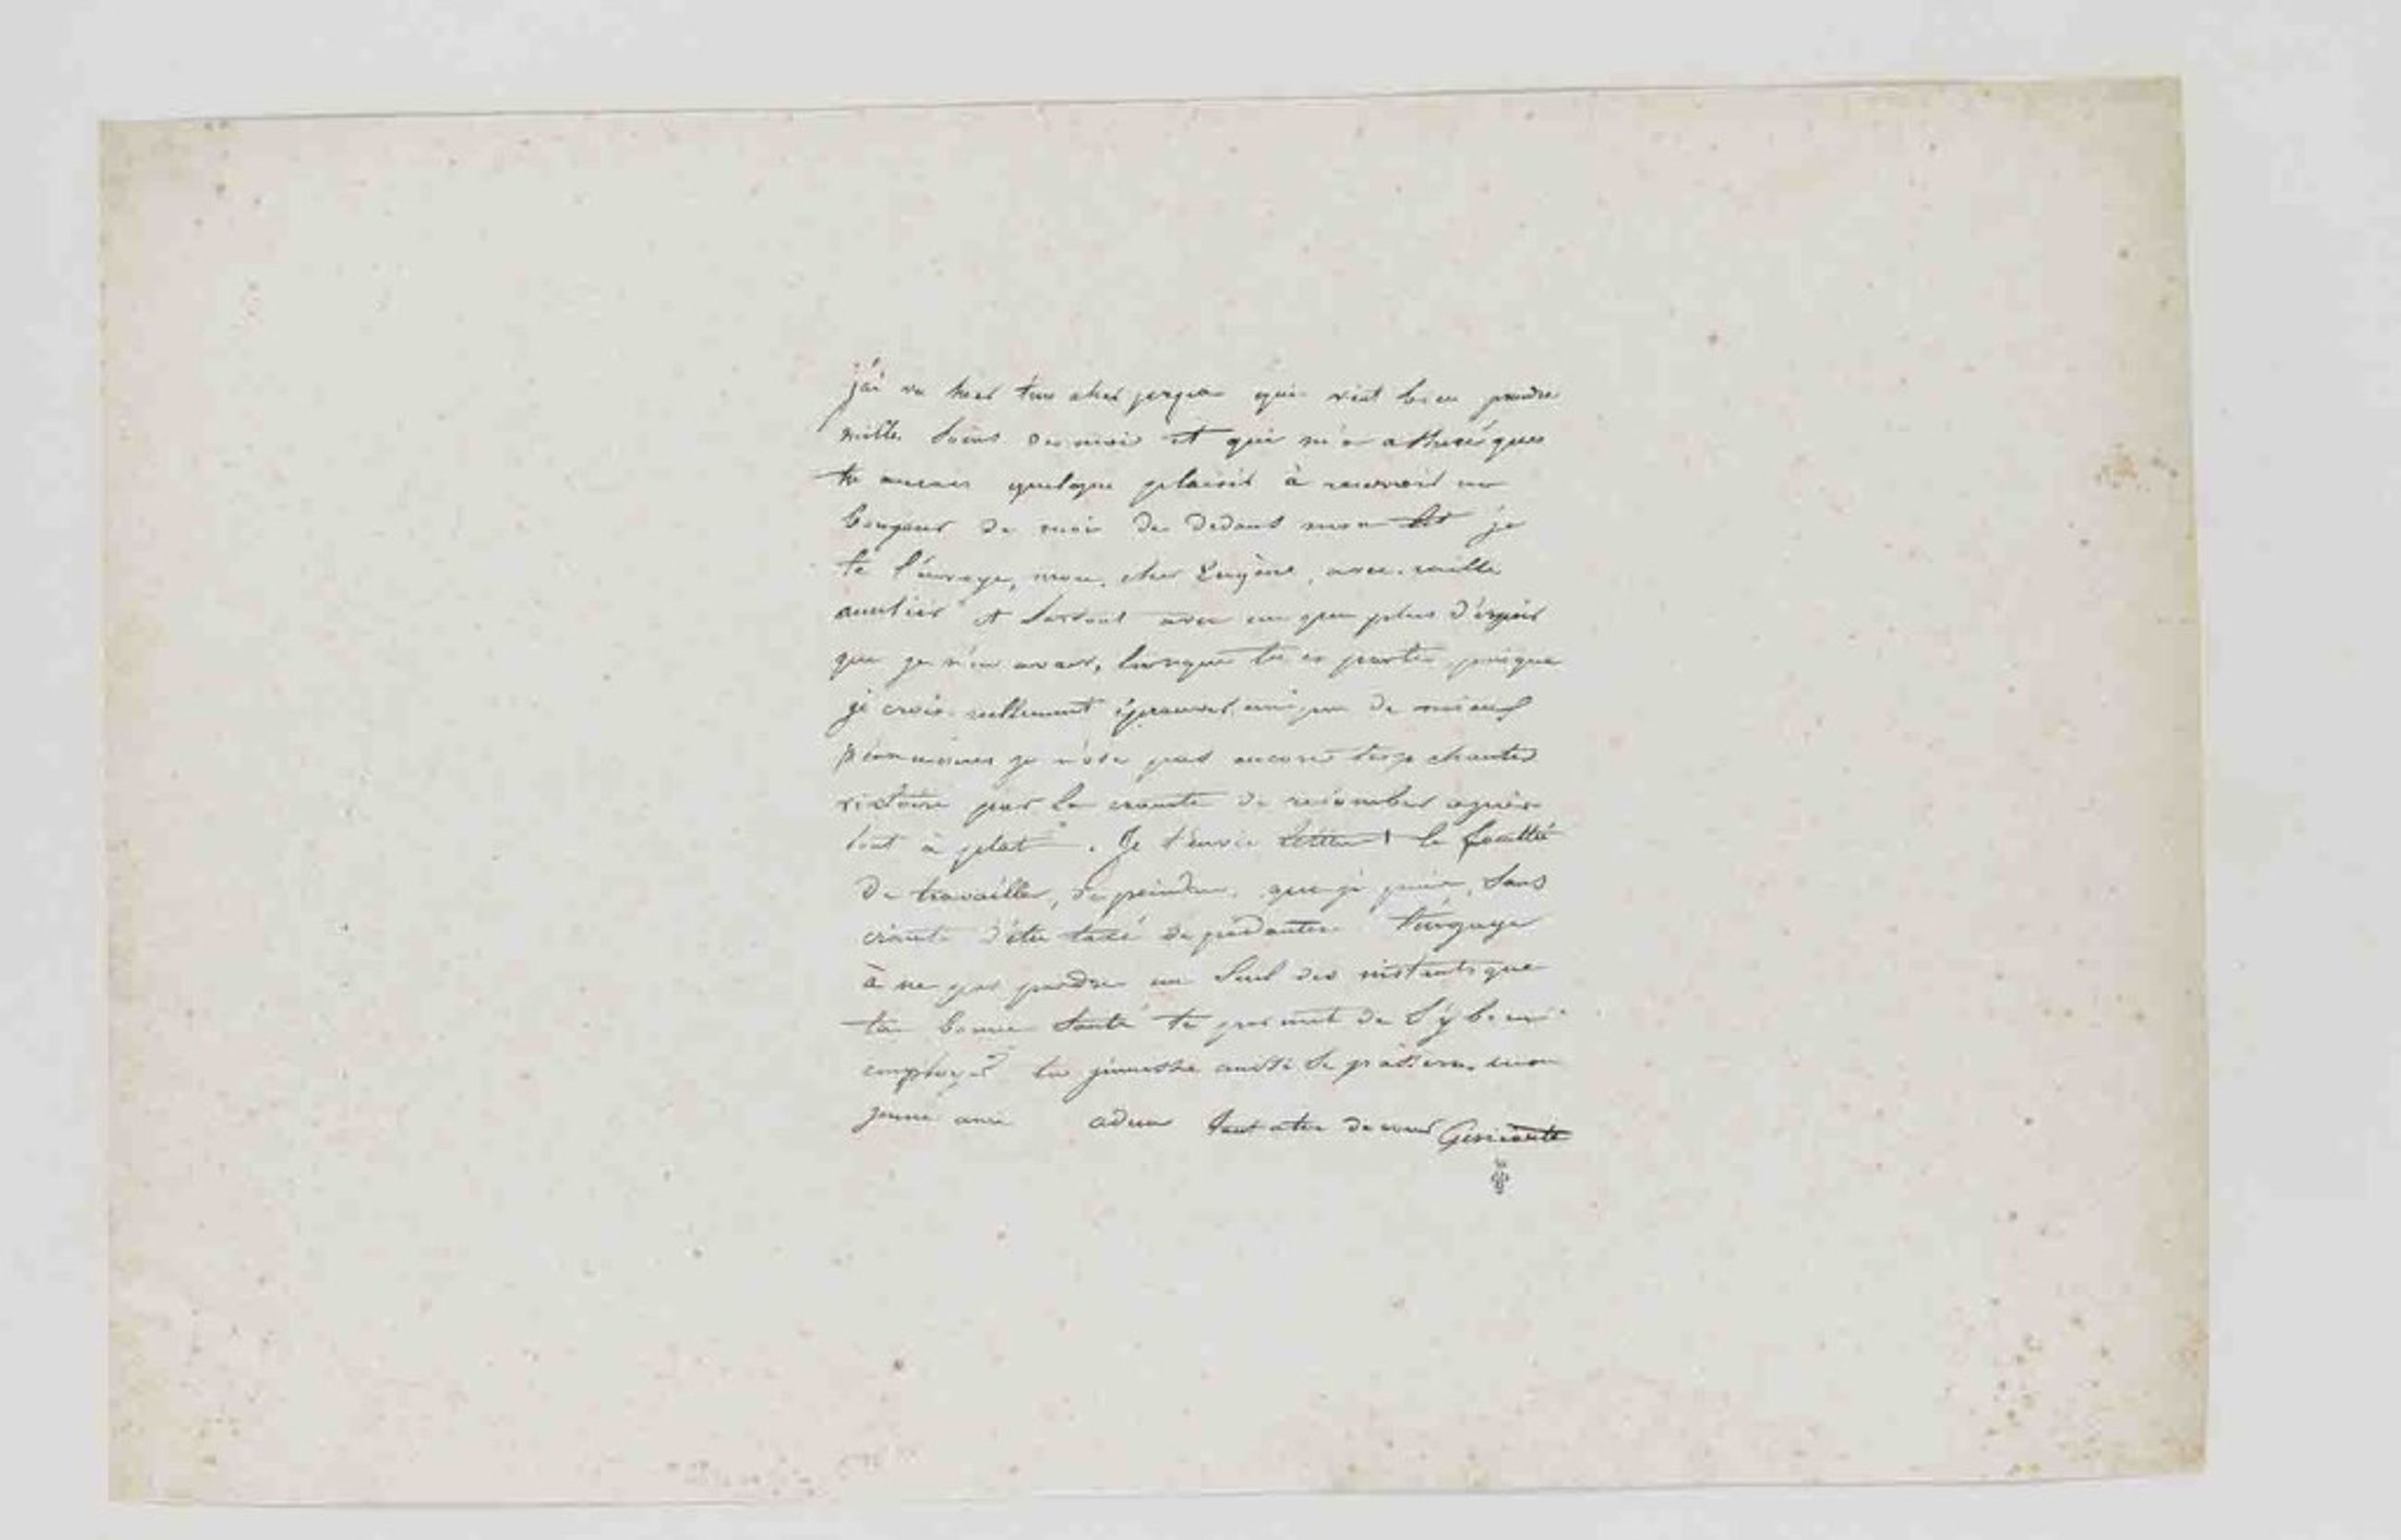 j'ai vu hier ton cher qui veut bien prendre
mille soins de moi et qui m'a assuré que
tu aurais quelque plaisir à recevoir un
bonjour de moi de dedans mon lit je
te l'envoye, mon cher Eugène, avec mille
amitiés et surtout avec un peu plus d'espoir
que je n'en avais, lorsque tu es parti, puisque
je crois réellement éprouver un peu de mieux
néanmoins je n'ose pas encore trop chanter
victoire par la crainte de retomber après
tout à plat. Je t'envie la faculté
de travailler, de peindre, que je puis, sans
crainte d'être taxé de pédanterie t'engager
à ne pas perdre un seul des instants que
ta bonne santé te permet de si bien
employer ta jeunesse aussi se passera, mon
jeune ami adieu tout à toi de cœur Géricault